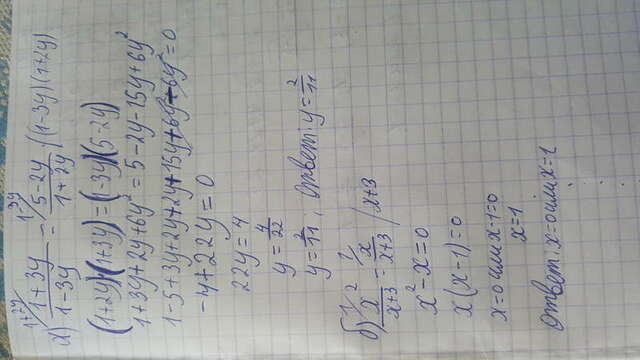 а) 1+2y/ (1+3y)/(1-3y) = 1-3y/ (5-2y)/(1+2y) / (1-3y)(1+2y)
(1+2y)·(1+3y)=(1-3y)(5-2y)
1+3y+2y+6y²=5-2y-15y+6y²
1-5+3y+2y+2y+15y+6y²-6y²=0
-4+22y=0
22y=4
y=4/22
y=2/11, Ответ: y=2/11
б) 1/ x²/(x+3) = 1/ x/(x+3) / x+3
x²-x=0
x(x-1)=0
x=0 или x-1=0
x=1
Ответ: x=0 или x=1